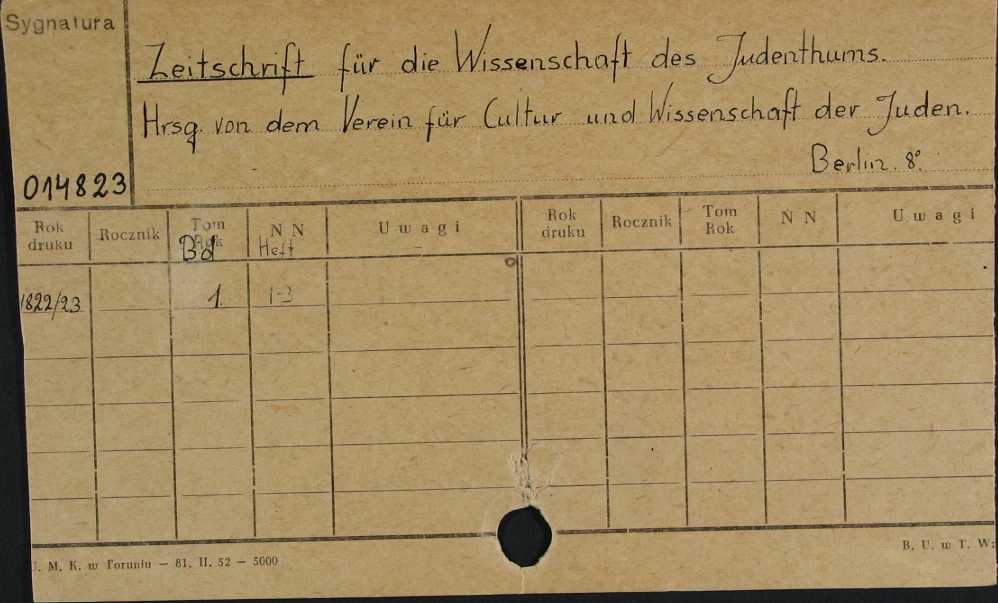 Sygnatura
Zeitschrift für die Wissenschaft des Judenthums.
Hrsg. von dem Verein für Cultur und Wissenschaft der Juden.
Berlin. 8°.
014823
Rok druku Rocznik Tom Rok N N Uwagi Rok druku Rocznik Tom Rok N N Uwagi
Bd Heft
1822/23 1. 1-3
U. M. K. w Toruniu — 81. II. 52 — 5000
B. U. w T. W: